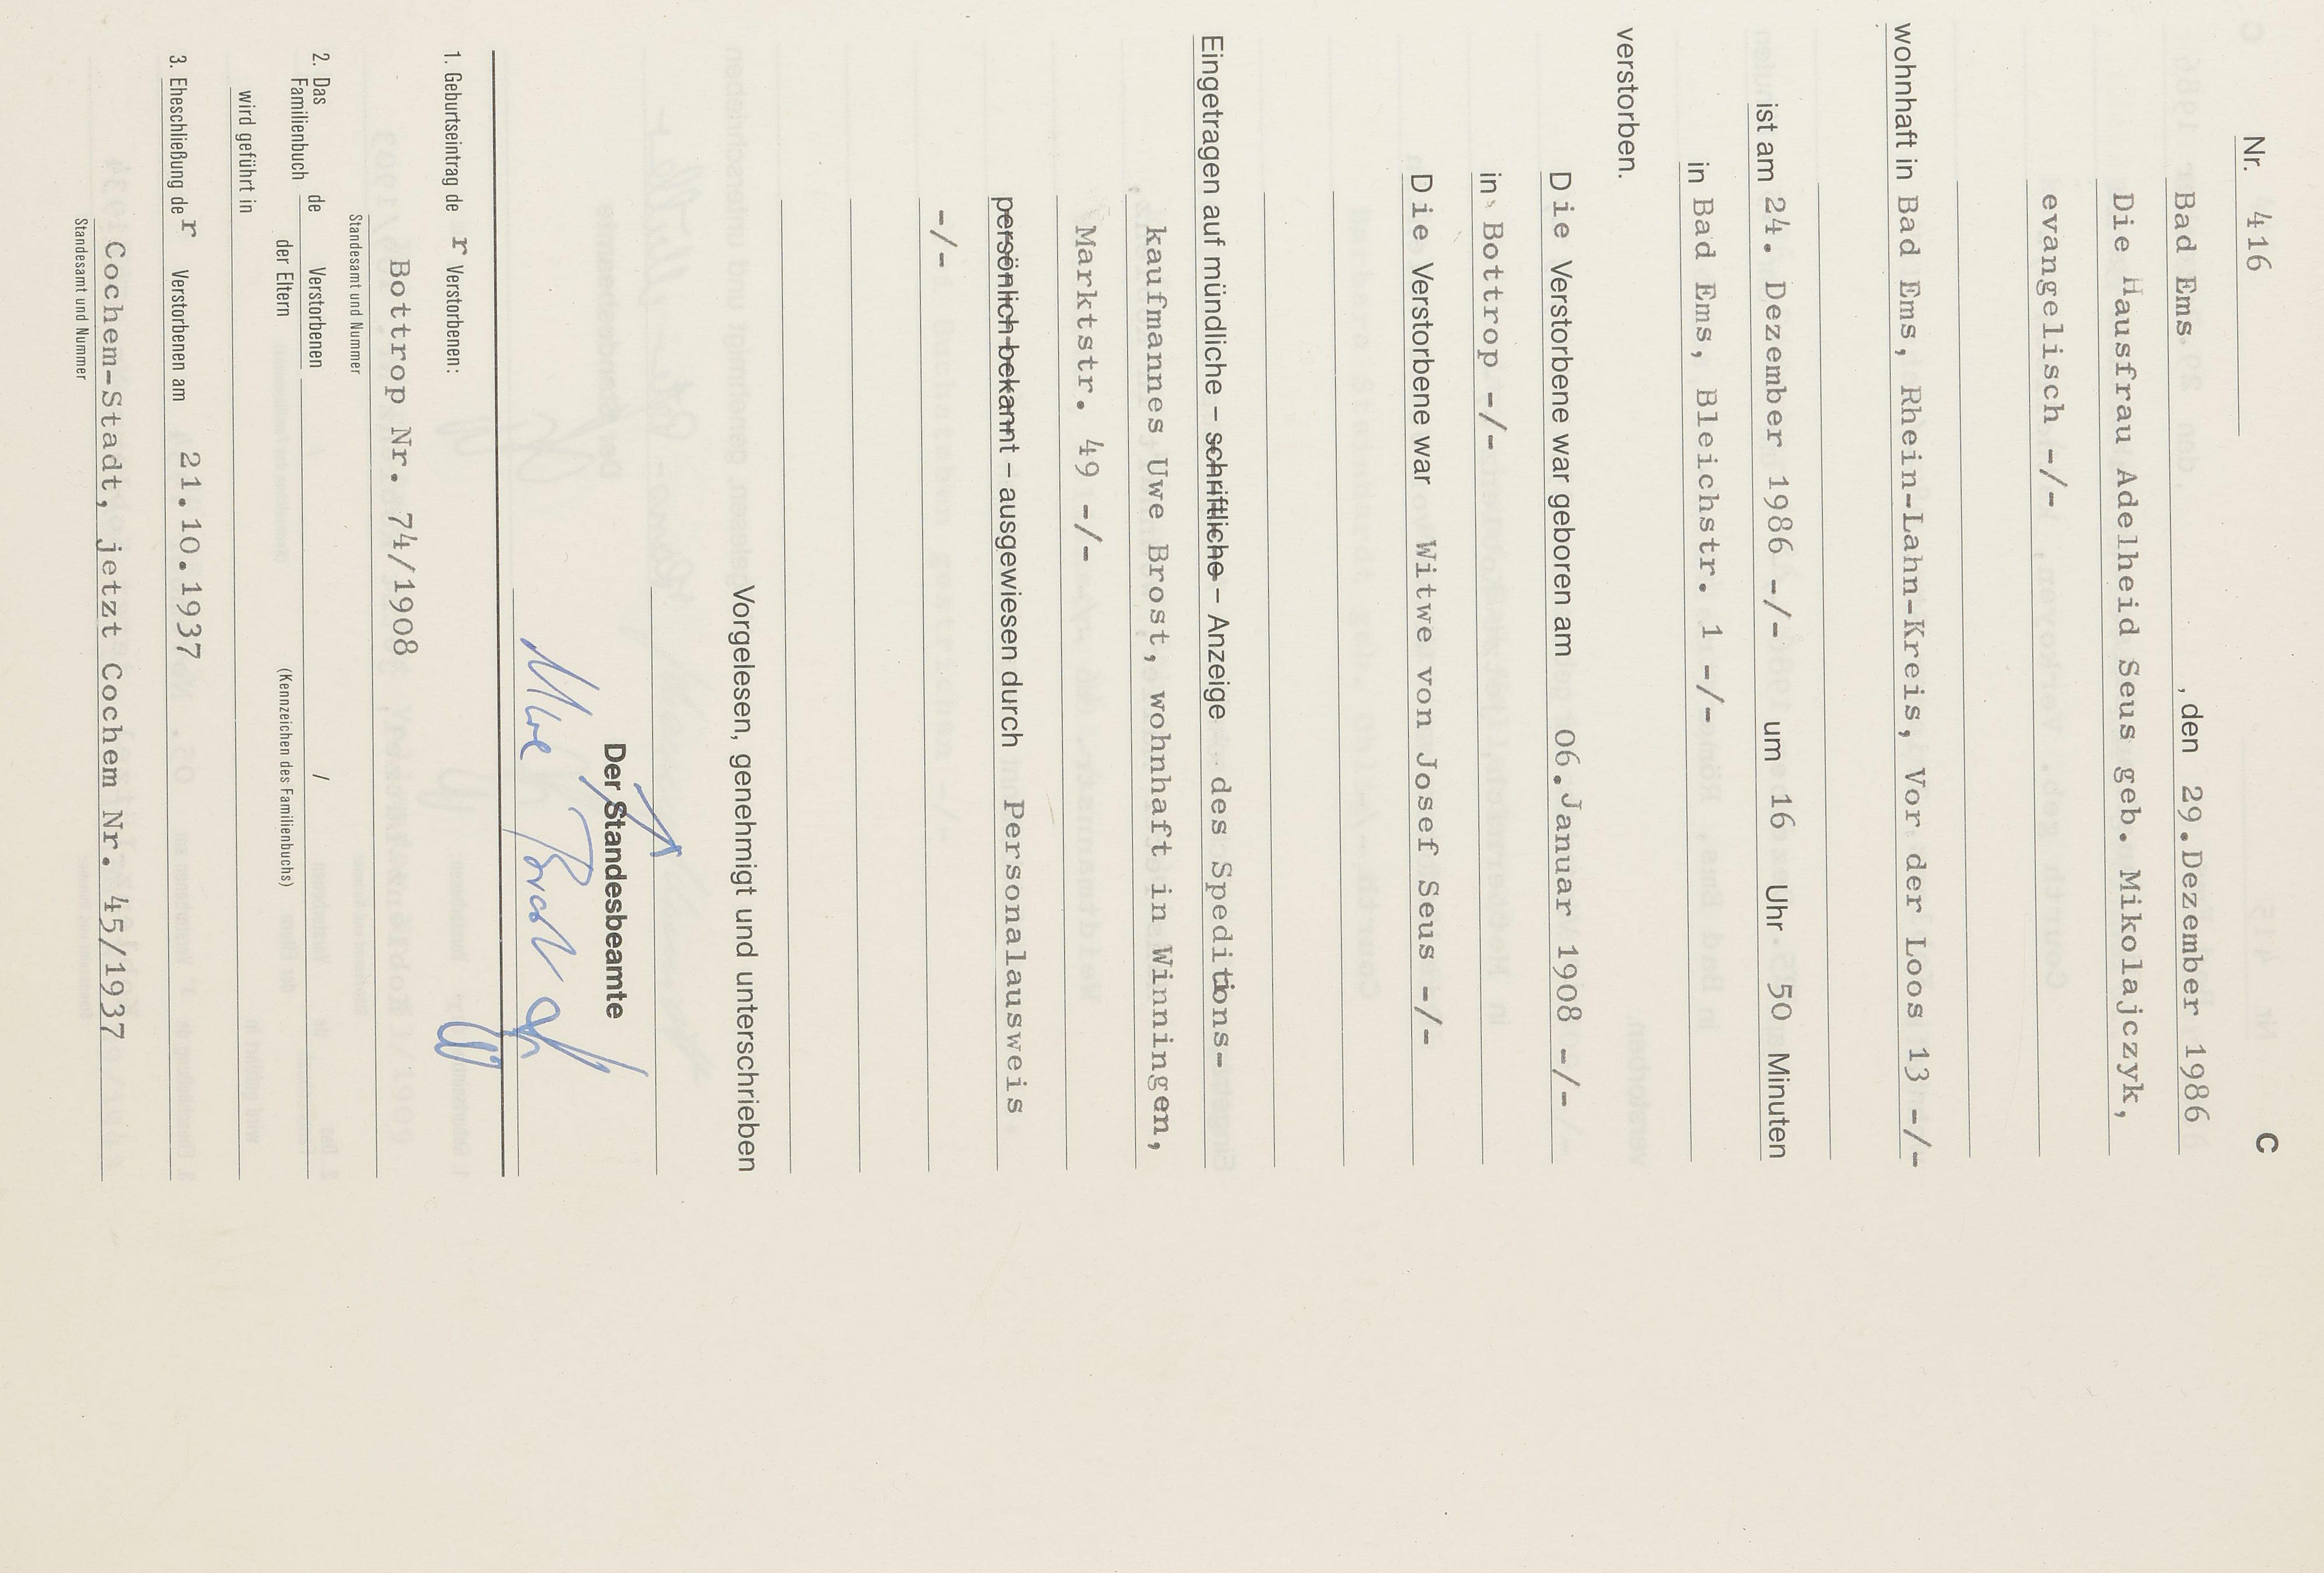 C
Nr. 416
Bad Ems, den 29. Dezember 1986
Die Hausfrau Adelheid Seus geb. Mikolajczyk,
evangelisch -/-
wohnhaft in Bad Ems, Rhein-Lahn-Kreis, Vor der Loos 13 -/-
ist am 24. Dezember 1986 -/- um 16 Uhr 50 Minuten
in Bad Ems, Bleichstr. 1 -/-
verstorben.
Die Verstorbene war geboren am 06. Januar 1908 -/-
in Bottrop -/-
Die Verstorbene war Witwe von Josef Seus -/-
Eingetragen auf mündliche – schriftliche – Anzeige des Speditions-
kaufmannes Uwe Brost, wohnhaft in Winningen,
Marktstr. 49 -/-
persönlich bekannt – ausgewiesen durch Personalausweis
-/-
Vorgelesen, genehmigt und unterschrieben
Der Standesbeamte
Uwe Brost
1. Geburtseintrag der Verstorbenen:
Bottrop Nr. 74/1908
Standesamt und Nummer
2. Das Familienbuch de Verstorbenen /
der Eltern (Kennzeichen des Familienbuchs)
wird geführt in
3. Eheschließung der Verstorbenen am 21.10.1937
Cochem-Stadt, jetzt Cochem Nr. 45/1937
Standesamt und Nummer